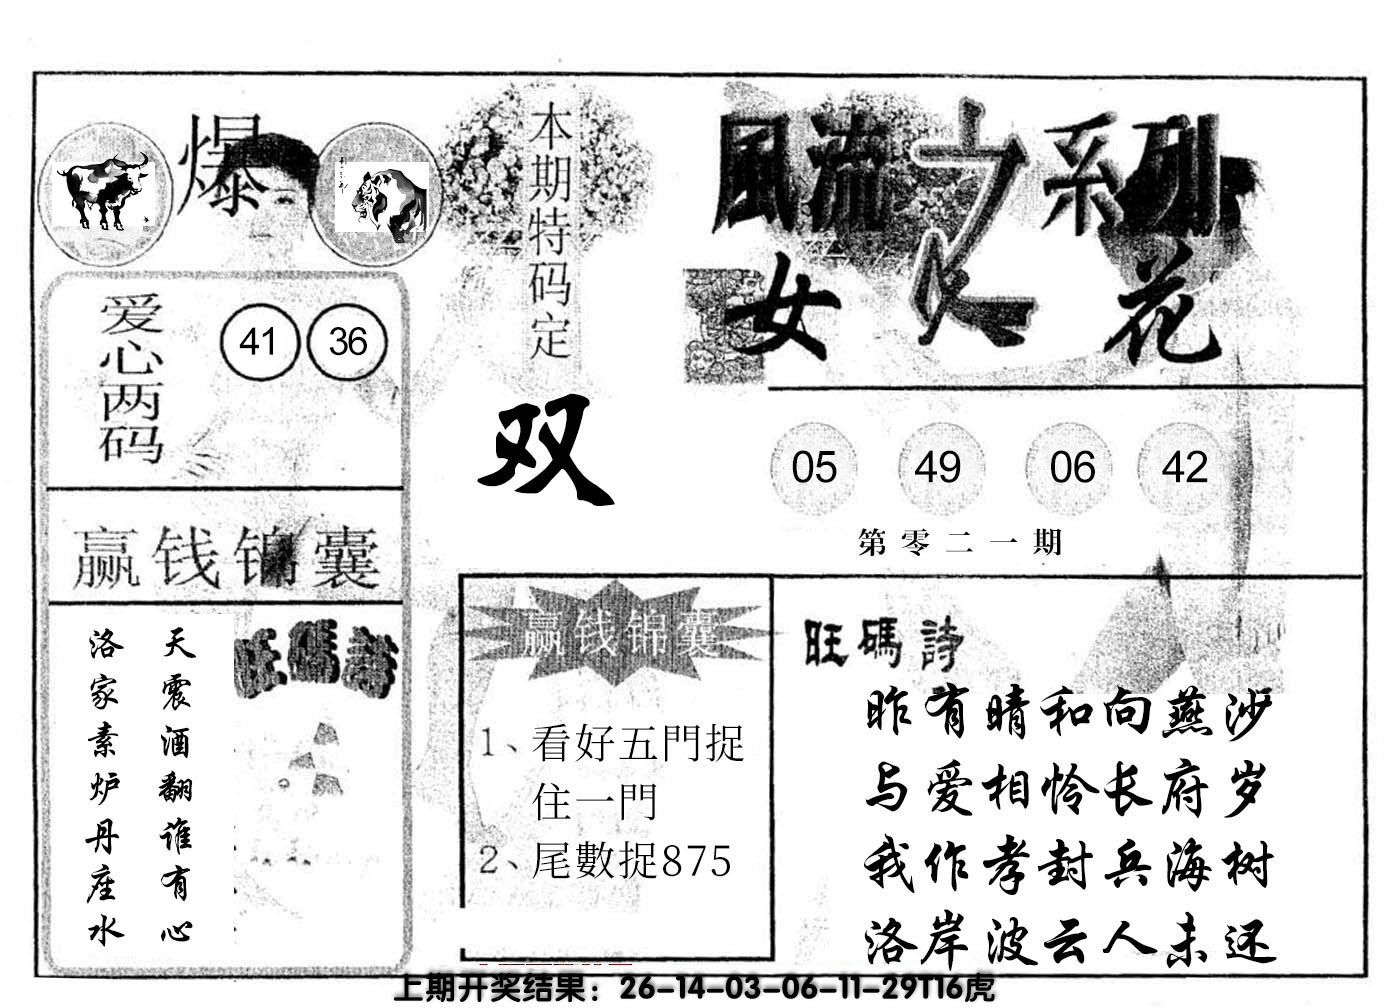 爆
本期特码定
双
風流之系列
女人花
爱心两码
41 36
05 49 06 42
第零二一期
赢钱锦囊
天震酒翻谁有心
洛家素炉丹座水
旺碼詩
赢钱锦囊
1、看好五門捉
住一門
2、尾數捉875
旺碼詩
昨有晴和向燕沙
与爱相怜长府岁
我作孝封兵海树
洛岸波云人未还
上期开奖结果：26-14-03-06-11-29T16虎